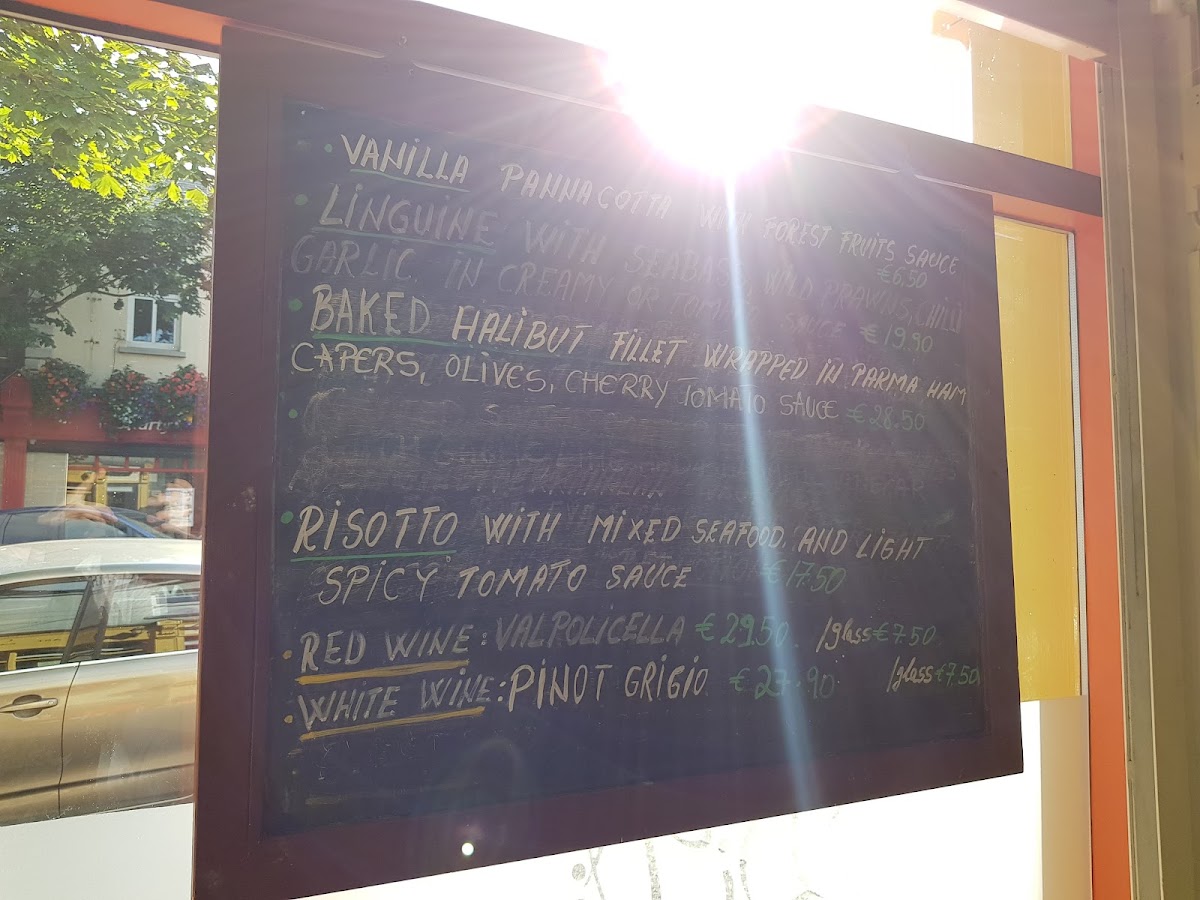 VANILLA PANNACOTTA WITH FOREST FRUITS SAUCE
€6,50
LINGUINE WITH SEABASS, WILD PRAWNS, CHILLI
GARLIC IN CREAMY OR TOMATO SAUCE €19.90
BAKED HALIBUT FILLET WRAPPED IN PARMA HAM
CAPERS, OLIVES, CHERRY TOMATO SAUCE €28.50
RISOTTO WITH MIXED SEAFOOD, AND LIGHT
SPICY TOMATO SAUCE €17.50
RED WINE: VALPOLICELLA €29.50 /glass €7.50
WHITE WINE: PINOT GRIGIO €27.90 /glass €7.50